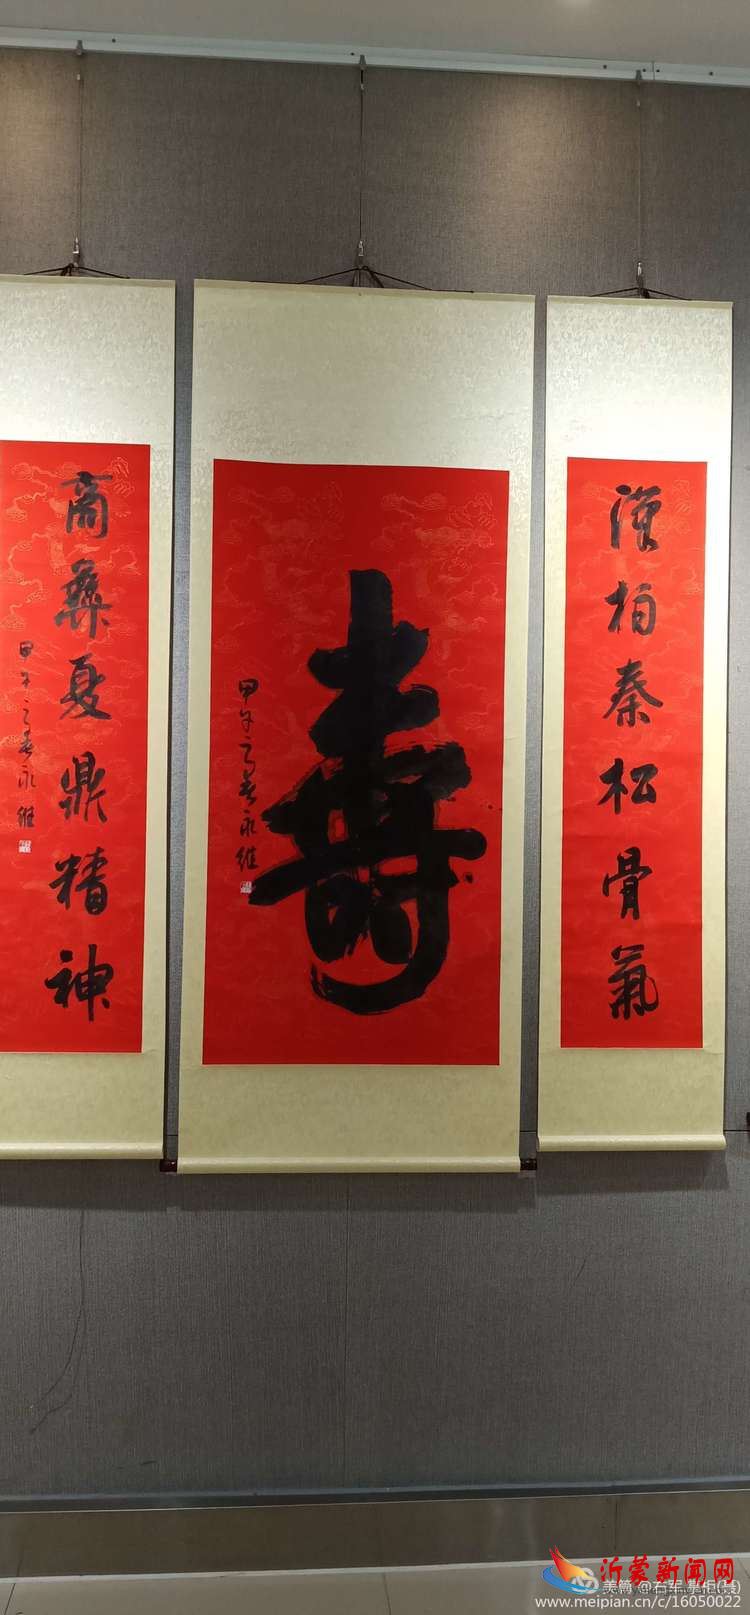 漢柏秦松骨氣
壽
甲午之春永維
商彝夏鼎精神
甲午之春永維
沂蒙新闻网
www.meipian.cn/c/16050022